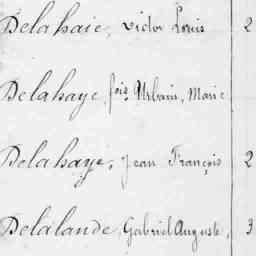 Delahaie, Victor Louis 2
Delahaye, fois Urbain, Marie
Delahaye, Jean François 2
Delalande, Gabriel Auguste, 3